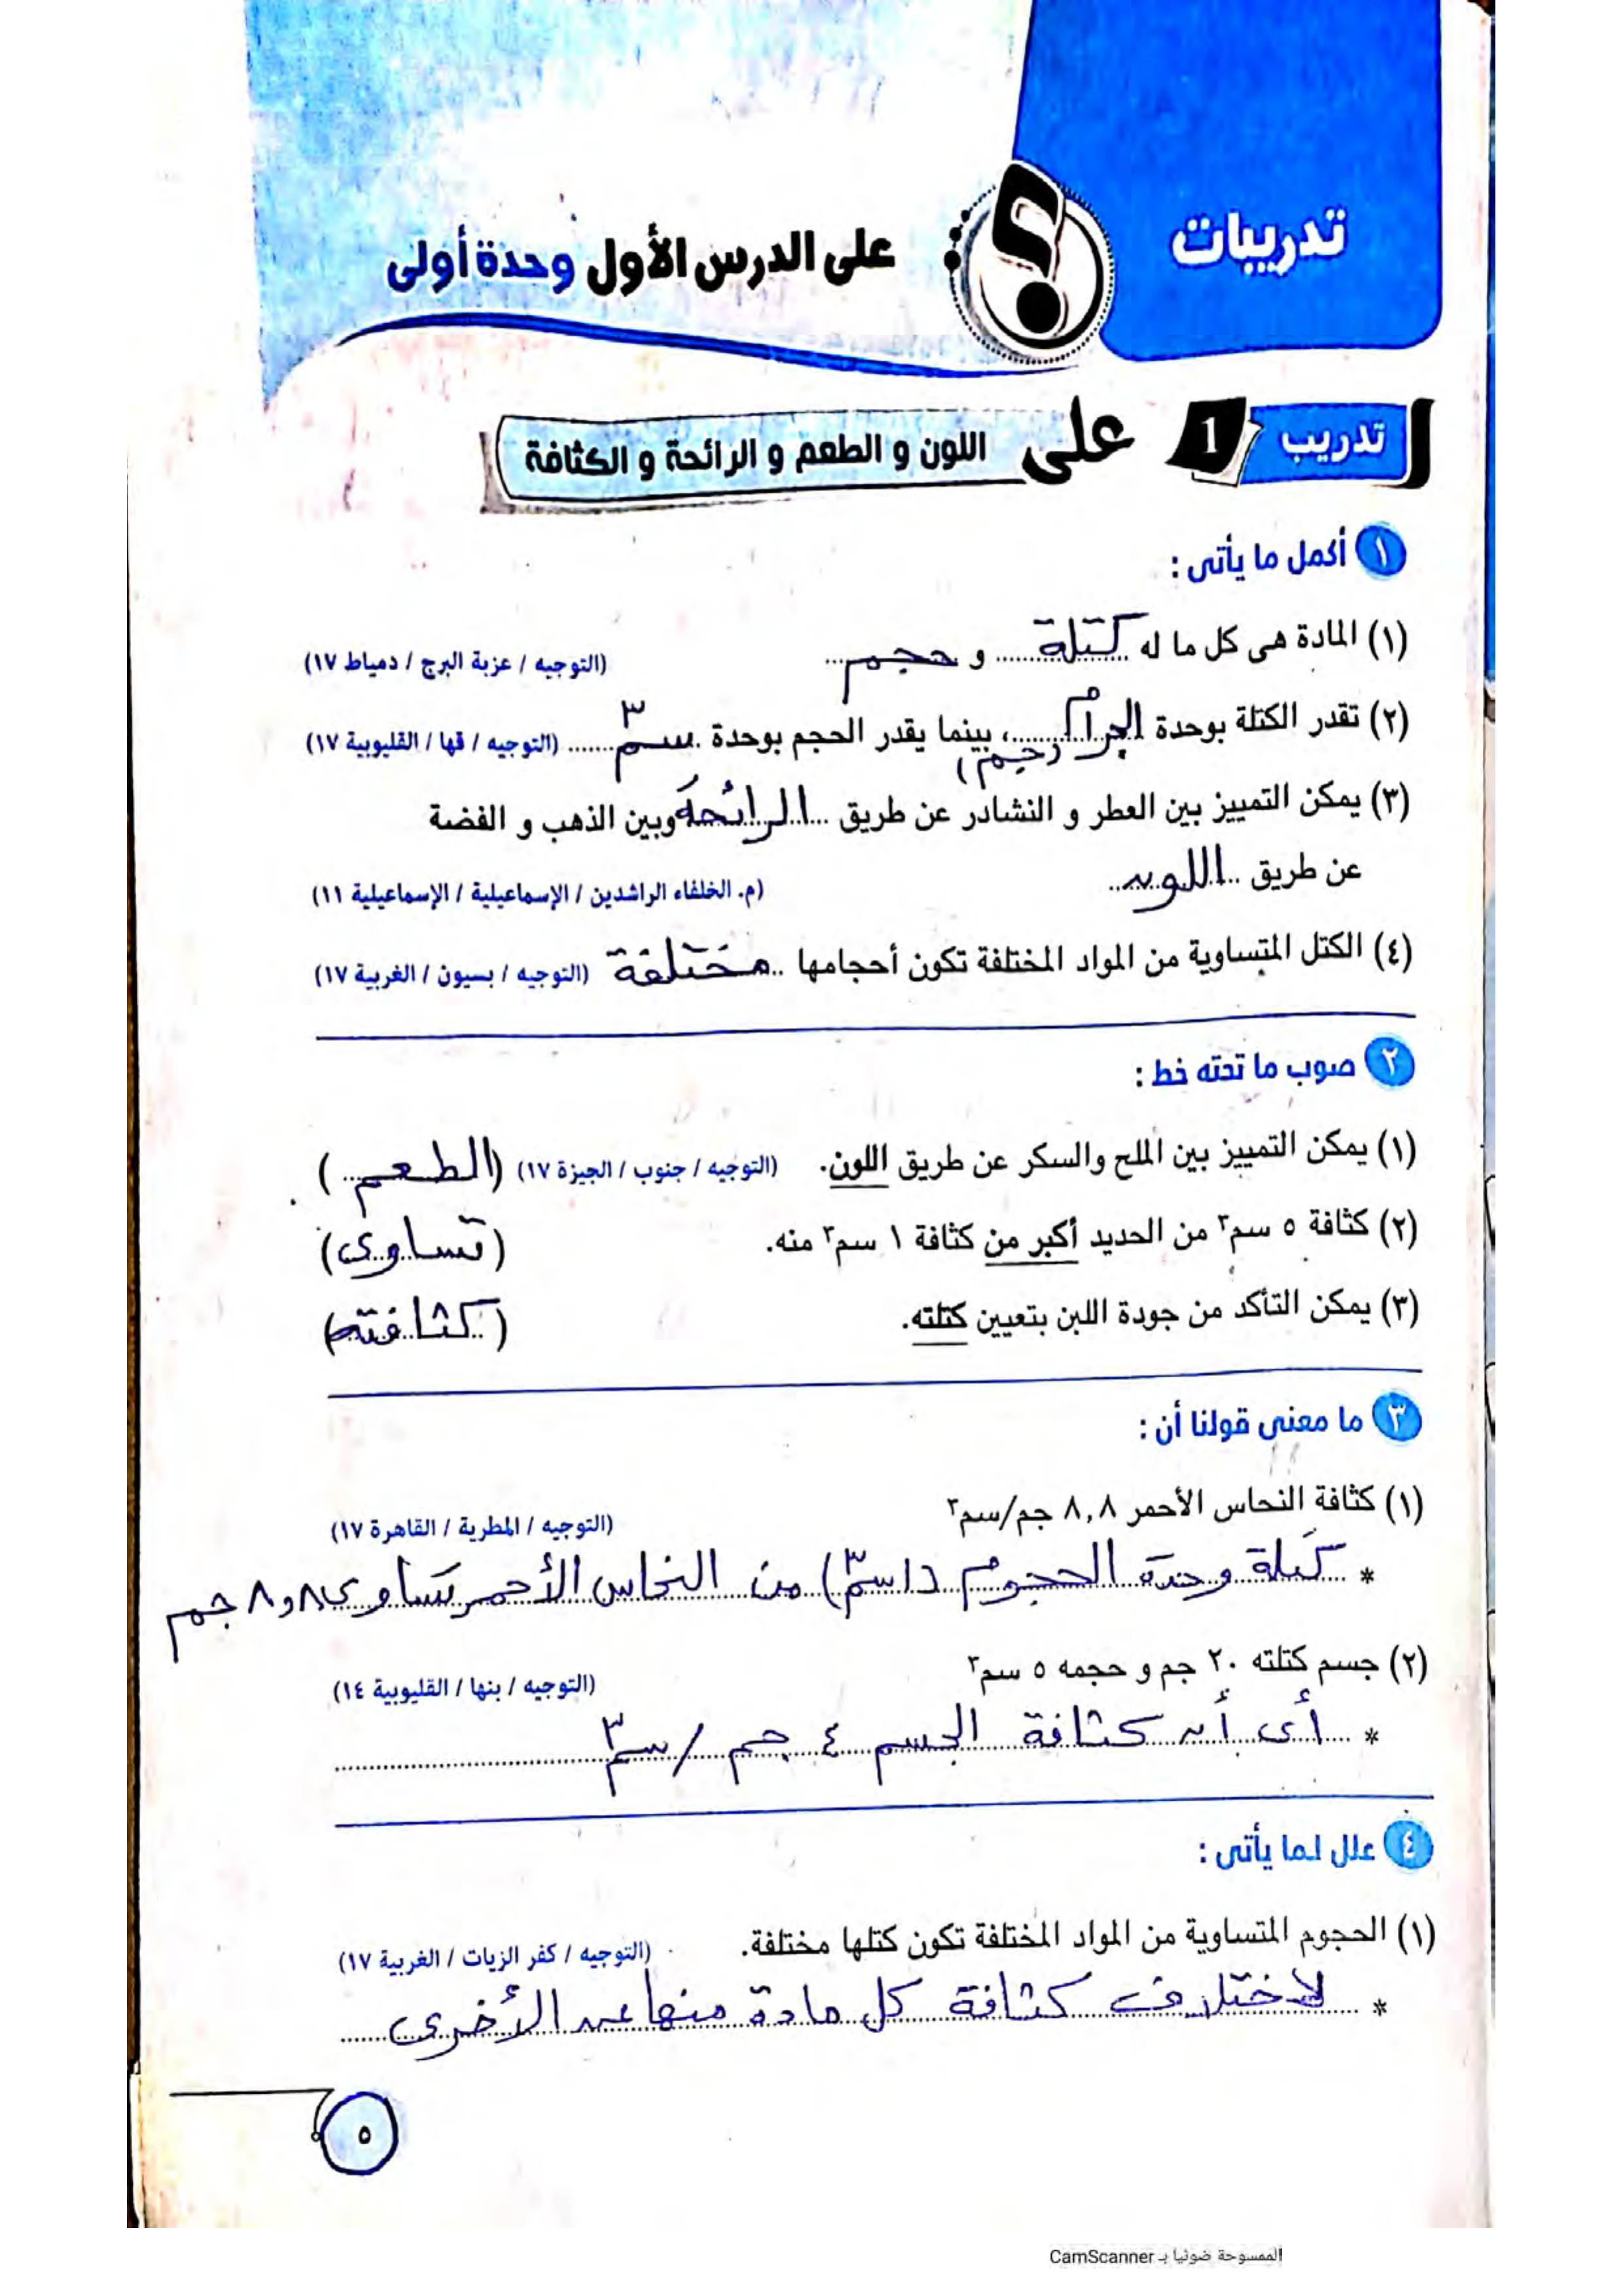 تدريبات
على الدرس الأول وحدة أولى
تدريب 1 على اللون و الطعم و الرائحة و الكثافة
١ أكمل ما يأتى :
(١) المادة هى كل ما له كتلة و حجم (التوجيه / عزبة البرج / دمياط ١٧)
(٢) تقدر الكتلة بوحدة الجرام (جم)، بينما يقدر الحجم بوحدة سم٣ (التوجيه / قها / القليوبية ١٧)
(٣) يمكن التمييز بين العطر و النشادر عن طريق الرائحة وبين الذهب و الفضة
عن طريق اللون (م. الخلفاء الراشدين / الإسماعيلية / الإسماعيلية ١١)
(٤) الكتل المتساوية من المواد المختلفة تكون أحجامها مختلفة (التوجيه / بسيون / الغربية ١٧)
٢ صوب ما تحته خط :
(١) يمكن التمييز بين الملح والسكر عن طريق اللون. (التوجيه / جنوب / الجيزة ١٧) (الطعم)
(٢) كثافة ٥ سم٣ من الحديد أكبر من كثافة ١ سم٣ منه. (تساوى)
(٣) يمكن التأكد من جودة اللبن بتعيين كتلته. (كثافته)
٣ ما معنى قولنا أن :
(١) كثافة النحاس الأحمر ٨,٨ جم/سم٣ (التوجيه / المطرية / القاهرة ١٧)
* كتلة وحدة الحجوم (١سم٣) من النحاس الأحمر تساوى ٨,٨ جم
(٢) جسم كتلته ٢٠ جم و حجمه ٥ سم٣ (التوجيه / بنها / القليوبية ١٤)
* أى أن كثافة الجسم ٤ جم / سم٣
٤ علل لما يأتى :
(١) الحجوم المتساوية من المواد المختلفة تكون كتلها مختلفة. (التوجيه / كفر الزيات / الغربية ١٧)
* لاختلاف كثافة كل مادة منها عن الأخرى
٥
الممسوحة ضوئيا بـ CamScanner